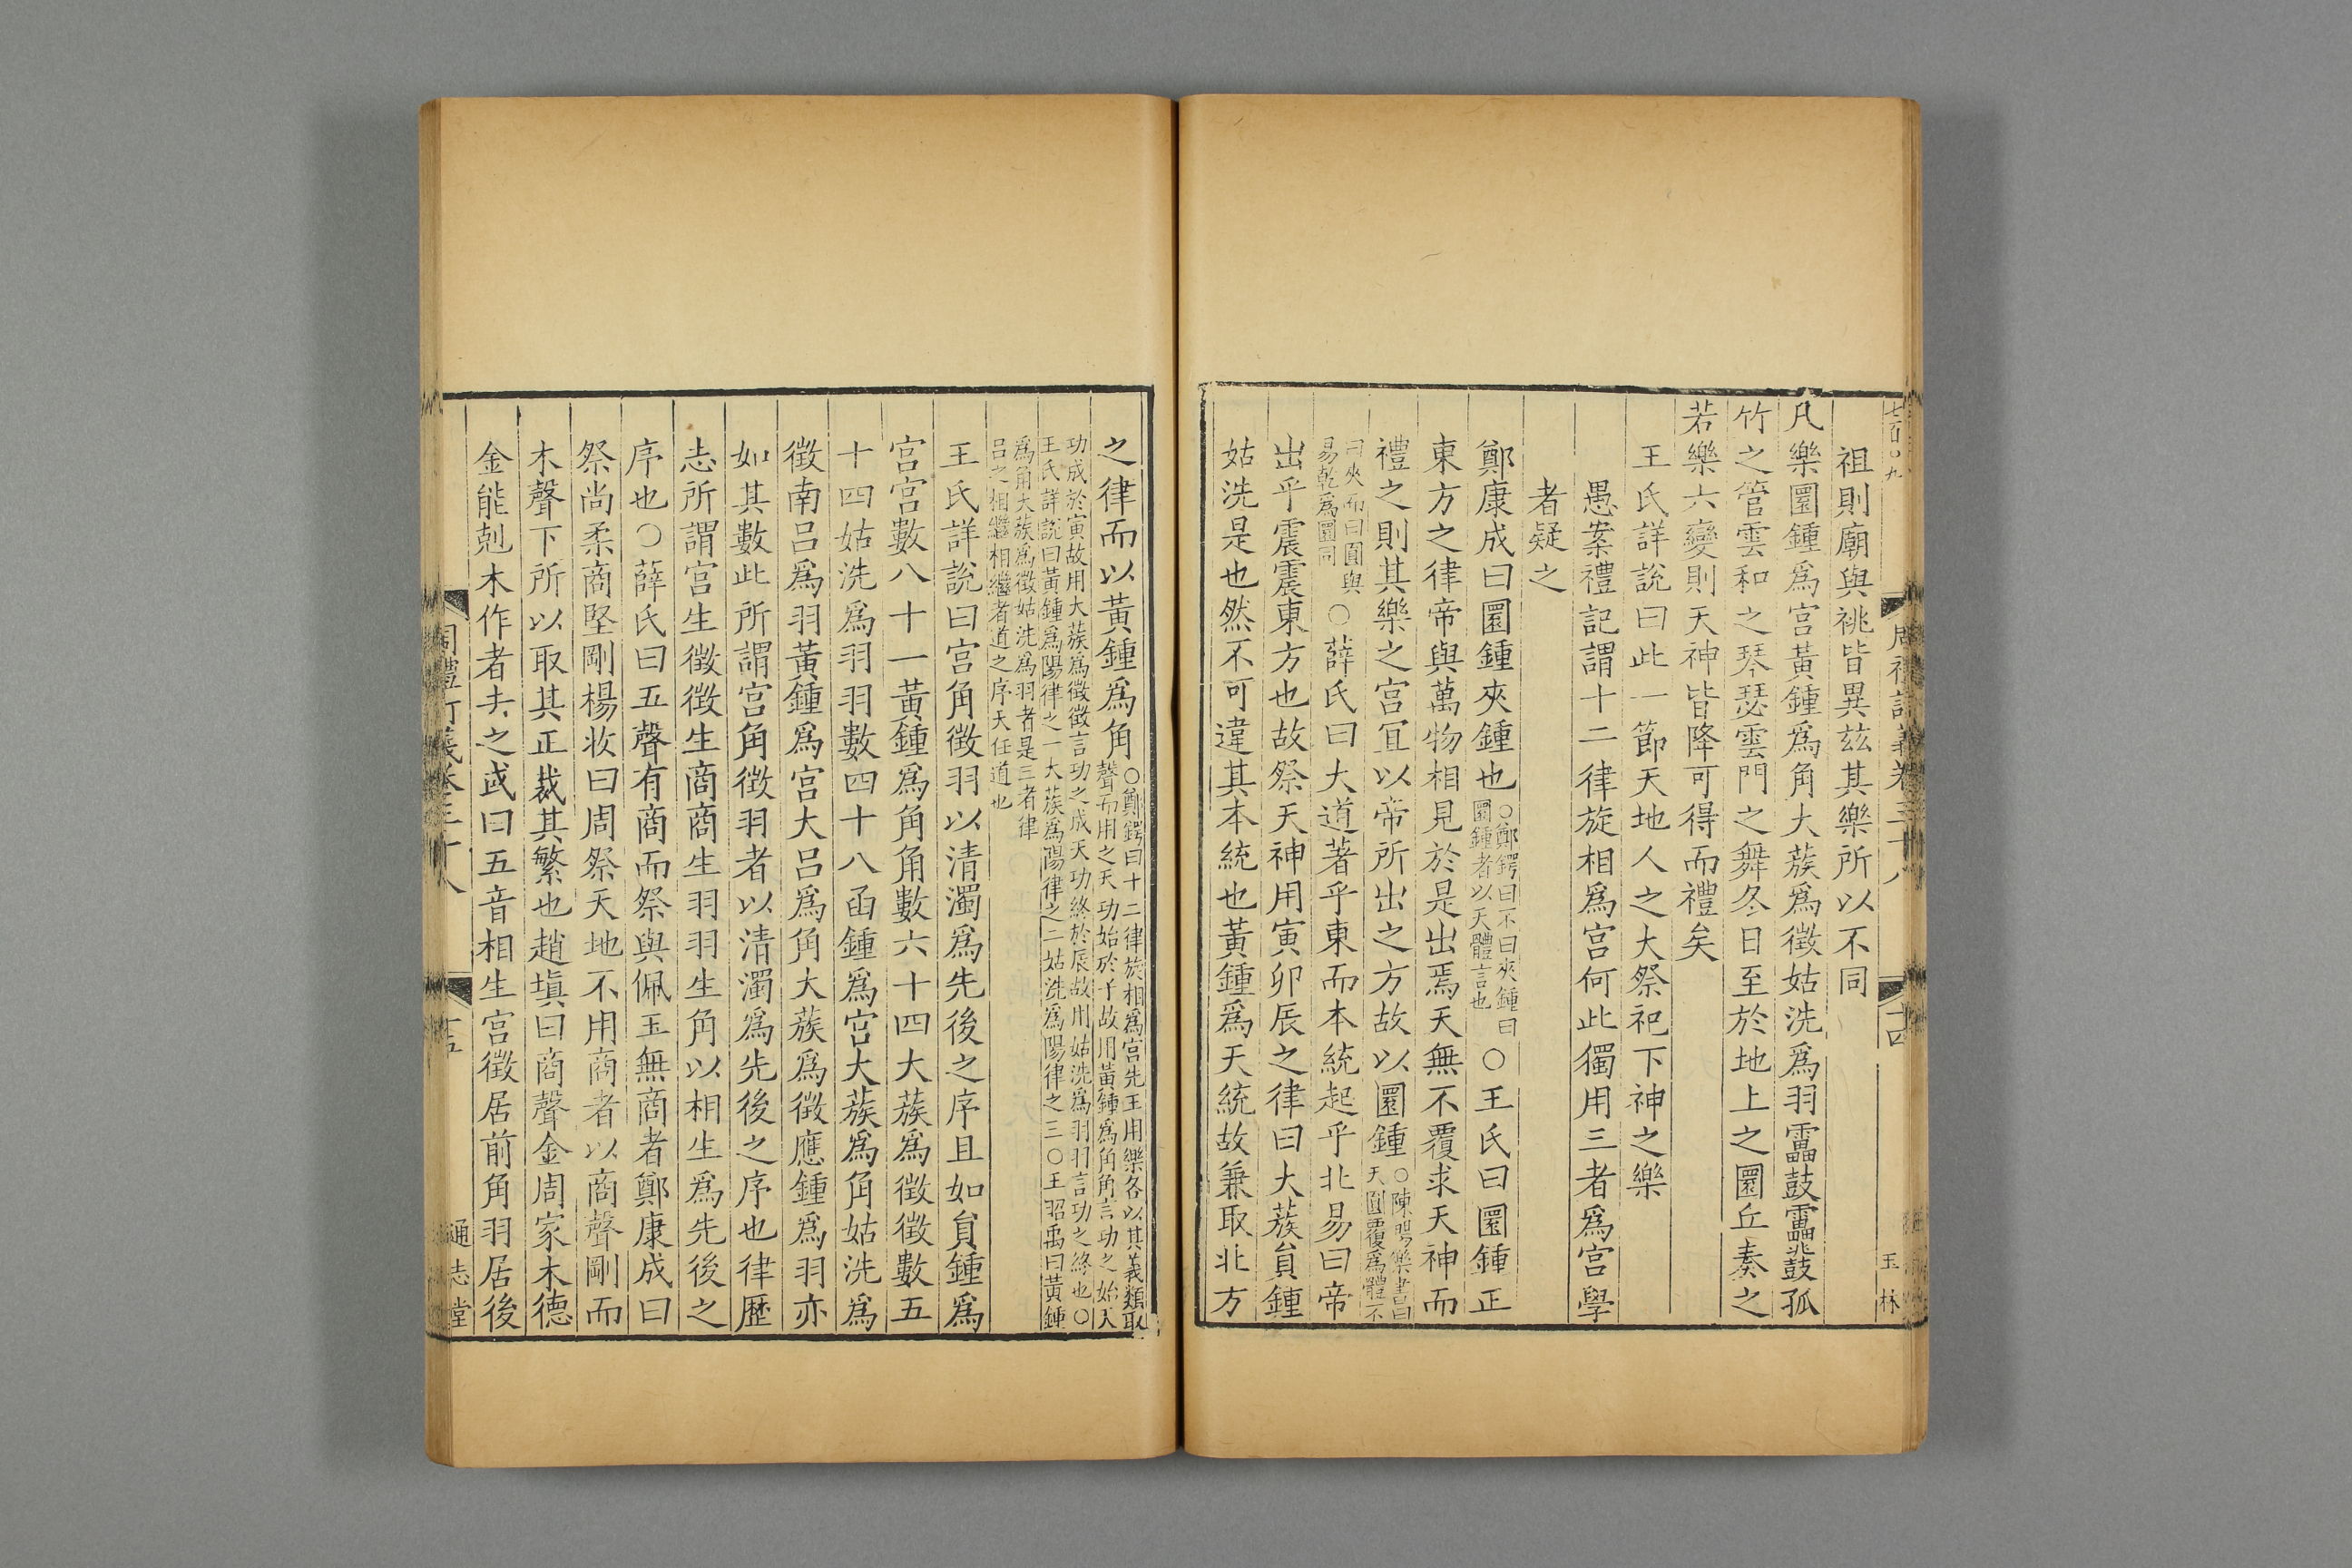 祖則廟與祧皆異兹其樂所以不同
凡樂圜鍾爲宮黃鍾爲角大蔟爲徵姑洗爲羽靁鼓靁鼗孤
竹之管雲和之琴瑟雲門之舞冬日至於地上之圜丘奏之
若樂六變則天神皆降可得而禮矣
王氏詳說曰此一節天地人之大祭祀下神之樂
愚案禮記謂十二律旋相爲宮何此獨用三者爲宮學
者疑之
鄭康成曰圜鍾夾鍾也○鄭鍔曰不曰夾鍾曰圜鍾者以天體言也○王氏曰圜鍾正
東方之律帝與萬物相見於是出焉天無不覆求天神而
禮之則其樂之宮宜以帝所出之方故以圜鍾○陳暘樂書曰天圓覆爲體不
曰夾而曰圓與易乾爲圜同○薛氏曰大道著乎東而本統起乎北易曰帝
出乎震震東方也故祭天神用寅卯辰之律曰大蔟負鍾
姑洗是也然不可違其本統也黃鍾爲天統故兼取北方
周禮訂義卷三十八
十四
玉林
之律而以黃鍾爲角○鄭鍔曰十二律旋相爲宮先王用樂各以其義類取聲而用之天功始於子故用黃鍾爲角角言功之始天
功成於寅故用大蔟爲徵徵言功之成天功終於辰故用姑洗爲羽羽言功之終也○王氏詳說曰黃鍾爲陽律之一大蔟爲陽律之二姑洗爲陽律之三○王昭禹曰黃鍾
爲角大蔟爲徵姑洗爲羽者是三者律呂之相繼相繼者道之序天任道也
王氏詳說曰宮角徵羽以清濁爲先後之序且如負鍾爲
宮宮數八十一黃鍾爲角角數六十四大蔟爲徵徵數五
十四姑洗爲羽羽數四十八函鍾爲宮大蔟爲角姑洗爲
徵南呂爲羽黃鍾爲宮大呂爲角大蔟爲徵應鍾爲羽亦
如其數此所謂宮角徵羽者以清濁爲先後之序也律歷
志所謂宮生徵徵生商商生羽羽生角以相生爲先後之
序也○薛氏曰五聲有商而祭與佩玉無商者鄭康成曰
祭尚柔商堅剛楊收曰周祭天地不用商者以商聲剛而
木聲下所以取其正裁其繁也趙塡曰商聲金周家木德
金能剋木作者去之或曰五音相生宮徵居前角羽居後
周禮訂義卷三十八
十五
通志堂